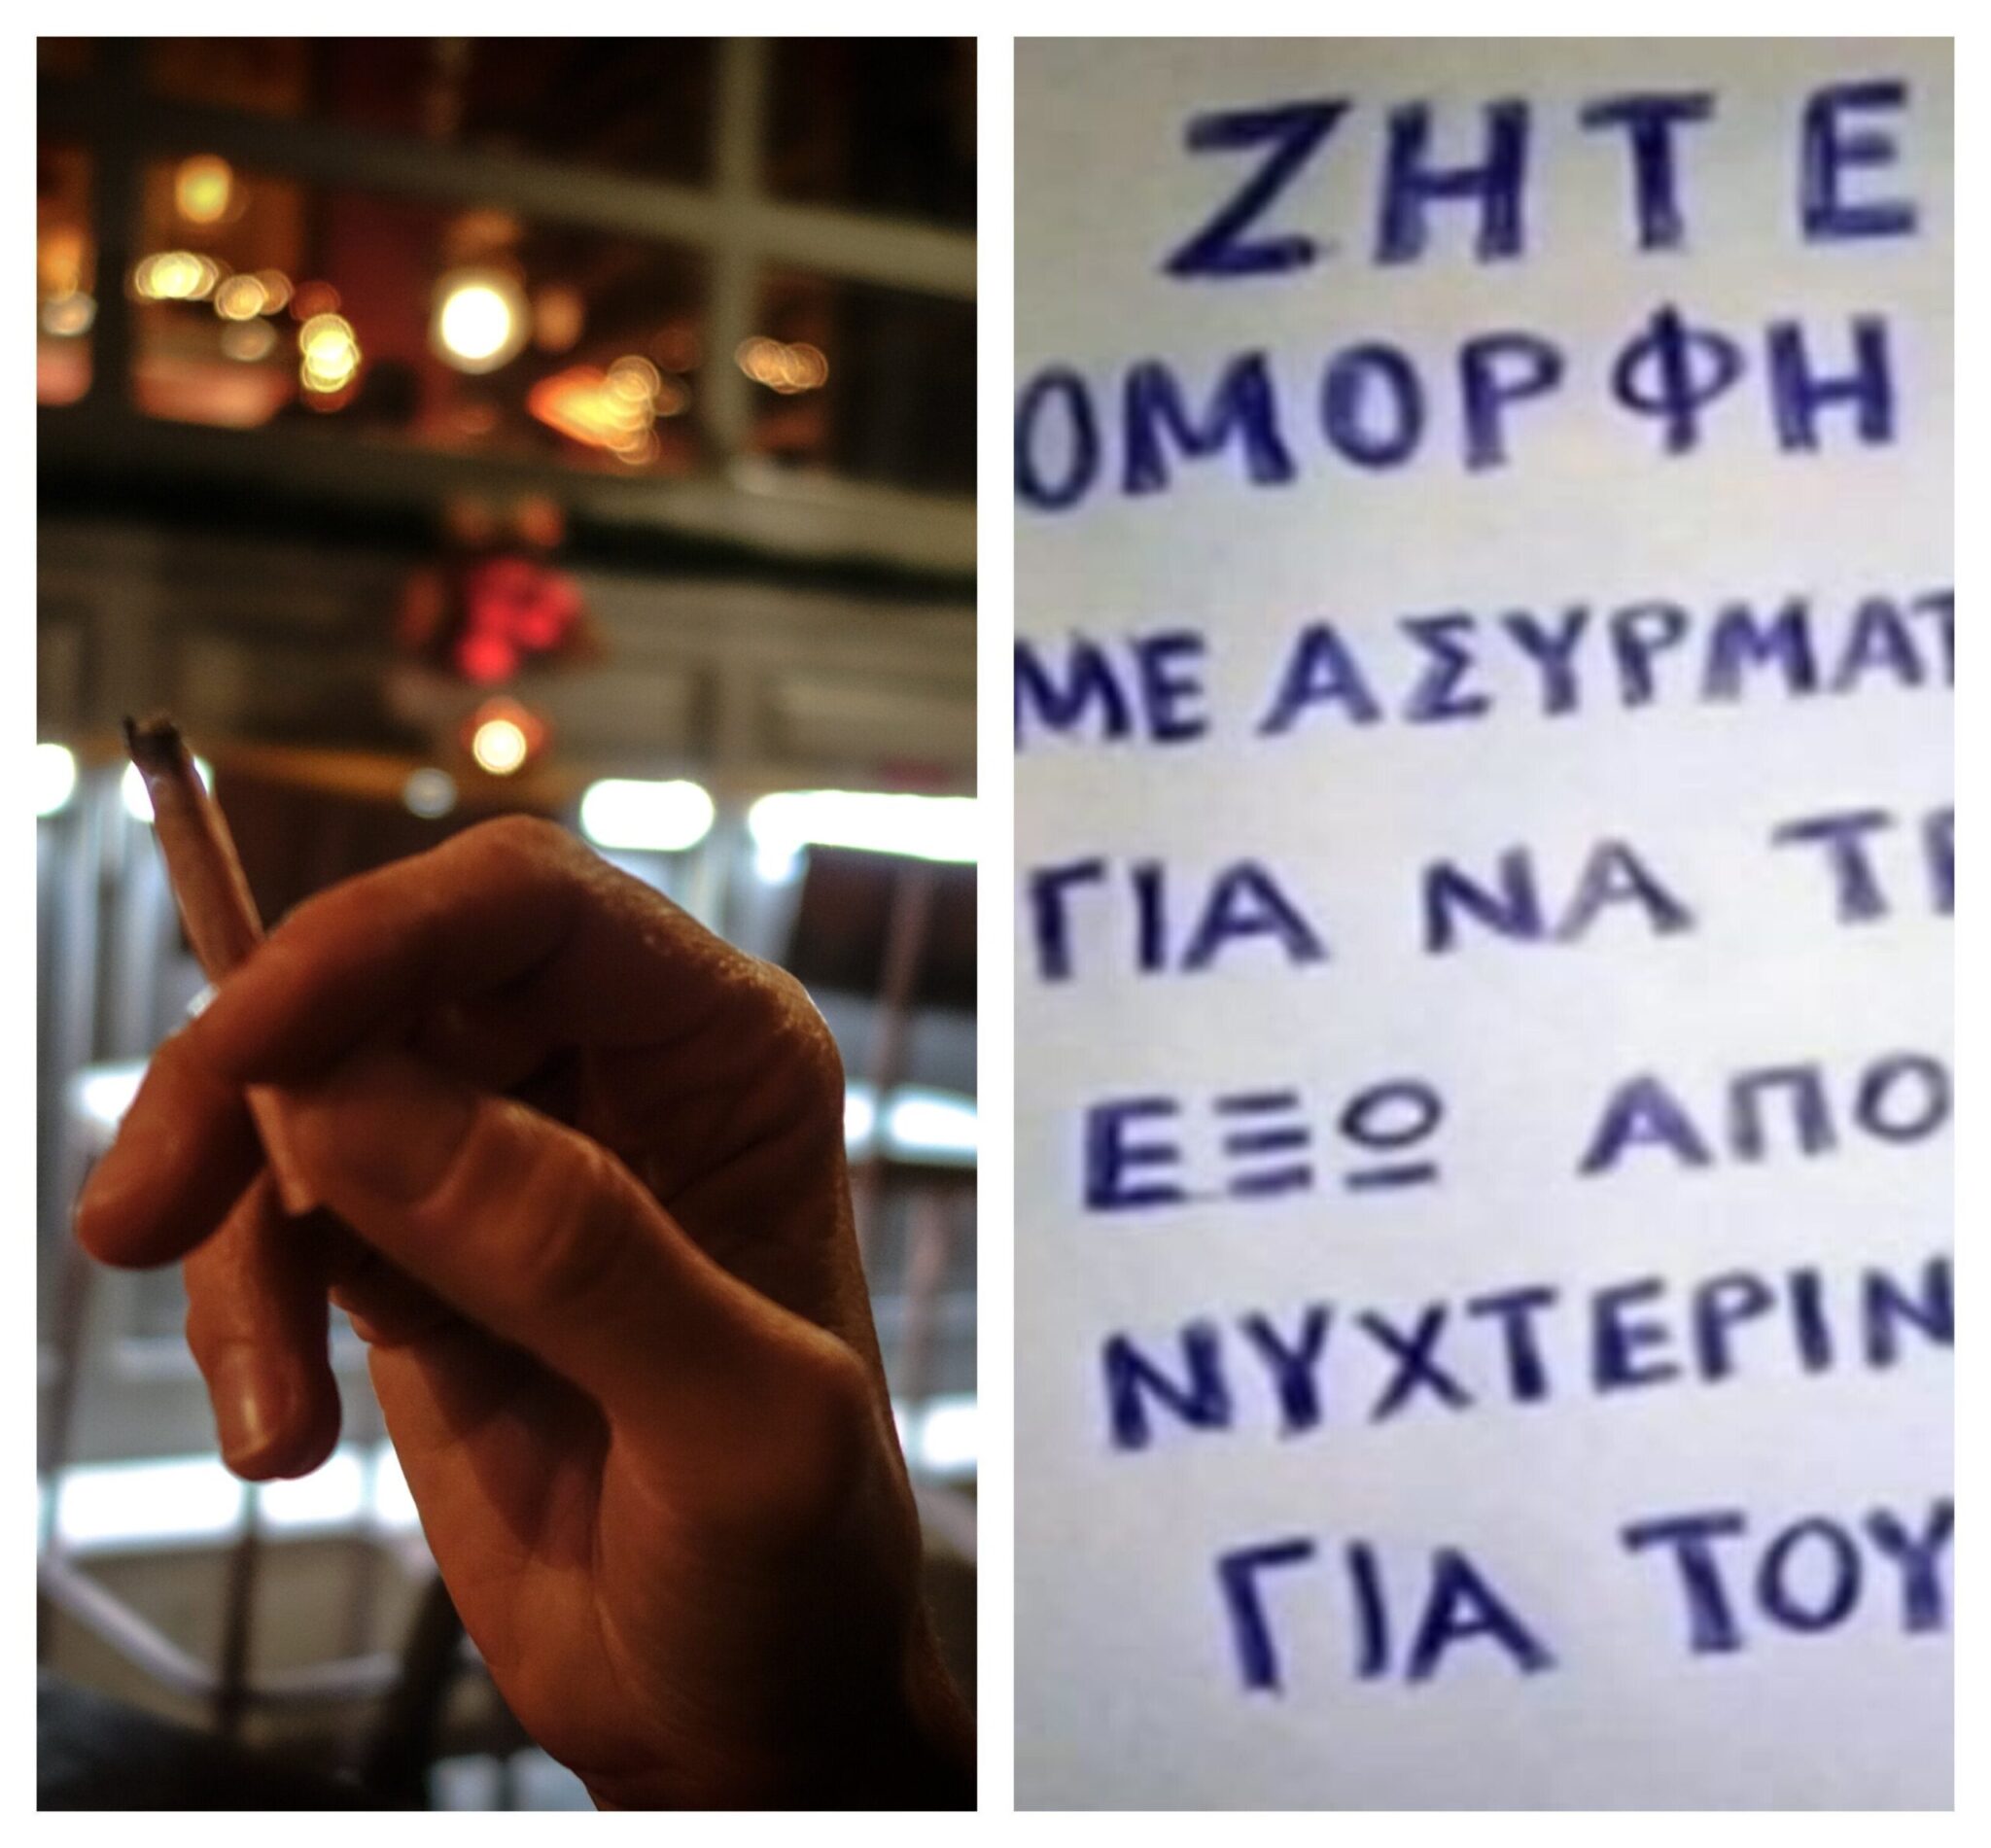 ΖΗΤΕ
ΟΜΟΡΦΗ
ΜΕ ΑΣΥΡΜΑΤ
ΓΙΑ ΝΑ ΤΡ
ΕΞΩ ΑΠΟ
ΝΥΧΤΕΡΙΝ
ΓΙΑ ΤΟΥ